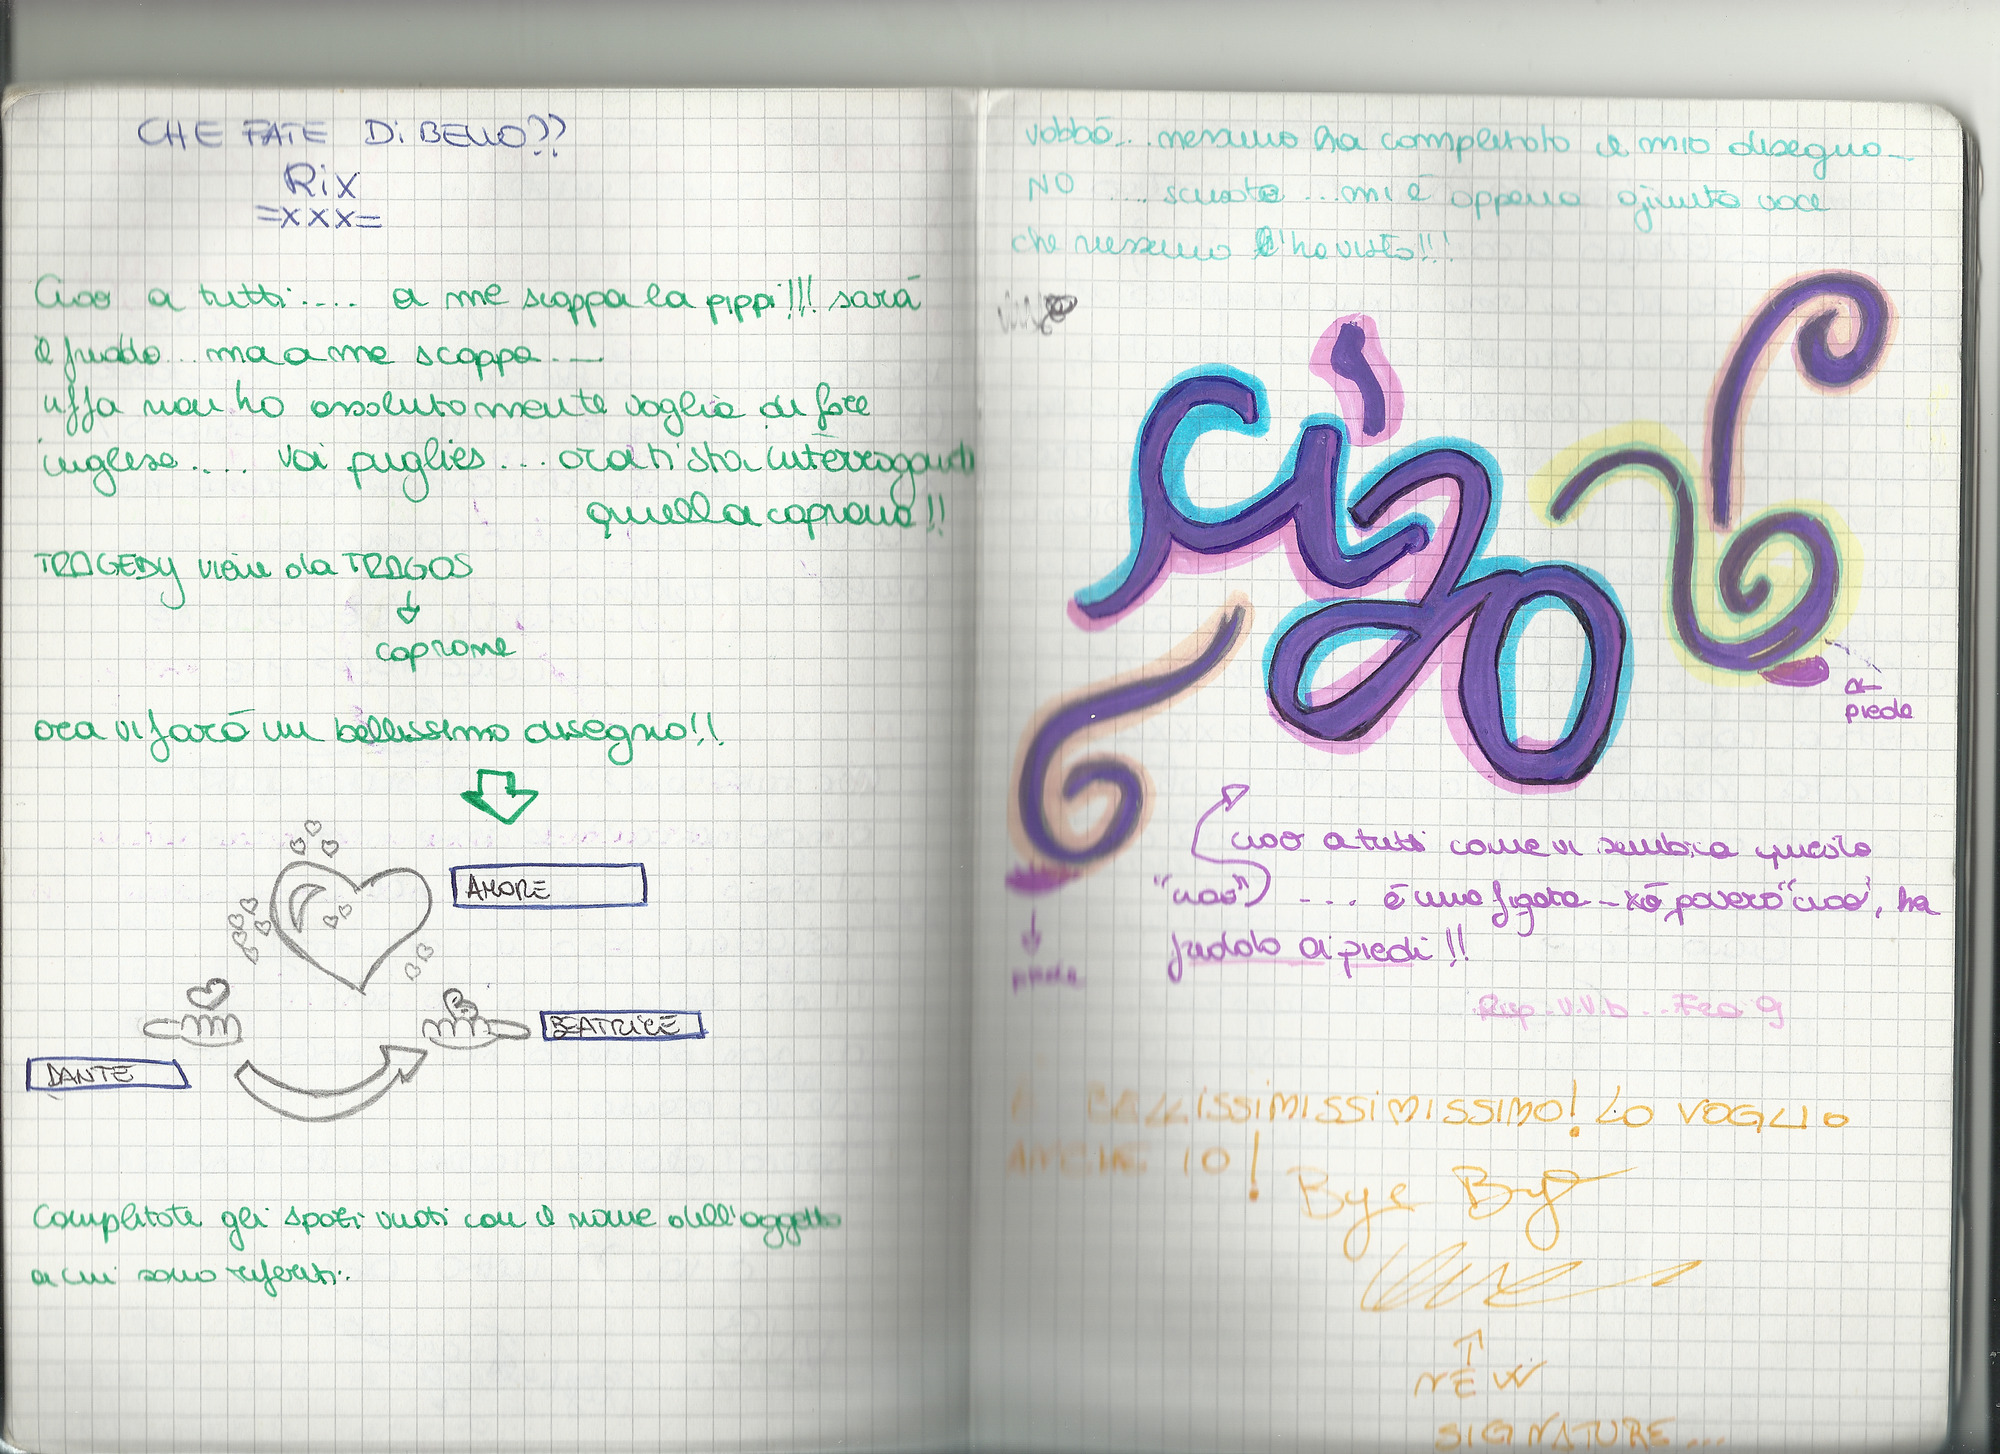 CHE FATE Di BELLO??
Rix
=xxx=
Ciao a tutti.... a me scappa la pippi!!! sarà
il freddo... ma a me scappa....
uffa non ho assolutamente voglia di fare
inglese.... vai puglies... ora ti sta interrogando
quella caprona!!
TRAGEDY viene da TRAGOS
caprone
ora vi farò un bellissimo disegno!!
AMORE
BEATRICE
DANTE
Completate gli spazi vuoti con il nome dell'oggetto
a cui sono riferiti.
vabbò... nessuno ha completato il mio disegno...
NO .... scusate ... mi è appena giunta voce
che nessuno l'ha visto!!!
ciao
piede
ciao a tutti come vi sembra questo
"ciao") .... è una figata - xò povero "ciao", ha
freddo ai piedi!!
piede
Risp. V.V.B...
BELLISSIMISSIMISSIMO! LO VOGLIO
ANCHE IO!
Bye Bye
NEW
SIGNATURE...